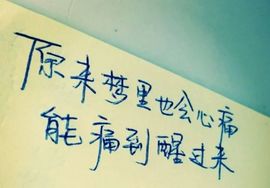 原来梦里也会心痛
能痛到醒过来